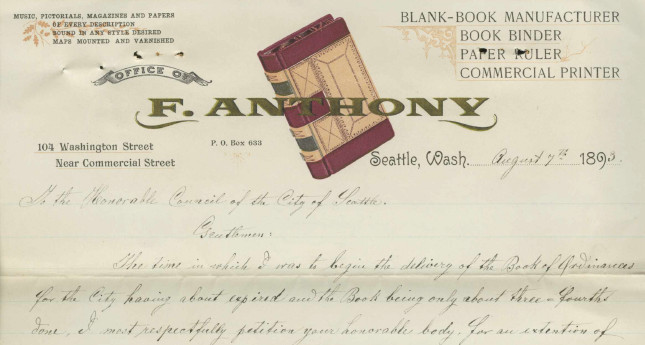 MUSIC, PICTORIALS, MAGAZINES AND PAPERS
OF EVERY DESCRIPTION
BOUND IN ANY STYLE DESIRED
MAPS MOUNTED AND VARNISHED
BLANK-BOOK MANUFACTURER
BOOK BINDER
PAPER RULER
COMMERCIAL PRINTER
OFFICE OF
F. ANTHONY
104 Washington Street
Near Commercial Street
P. O. Box 633
Seattle, Wash. August 7th 1893.
To the Honorable Council of the City of Seattle.
Gentlemen:
The time in which I was to begin the delivery of the Book of Ordinances
for the City having about expired and the Book being only about three-fourths
done, I most respectfully petition your honorable body, for an extention of